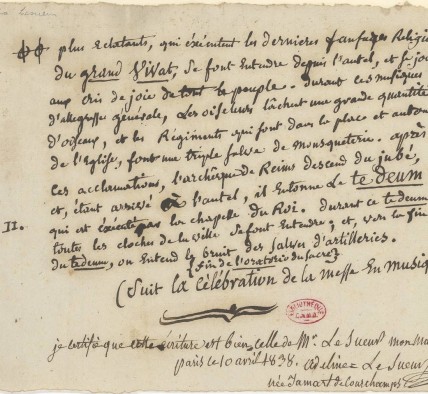 plus éclatants, qui exécutent les dernières fanfares Religi
du grand Vivat, se font entendre depuis l'autel, et se joi
aux cris de joie de tout le peuple. durant ces musiques
d'allégresse générale, Les oiseleurs lâchent une grande quantité
d'oiseaux, et les Régiments qui sont dans la place et autour
de l'Eglise, font une triple salve de mousqueterie. après
ces acclamations, l'archevêque de Reims descend du jubé,
et, étant arrivé à l'autel, il entonne le te deum
II. qui est exécuté par la chapelle du Roi. Durant ce te deum
toutes les cloches de la ville se font entendre; et, vers la fin
du te deum, on entend le bruit des salves d'artilleries.
(fin de l'oratorio du sacre)
(Suit la célébration de la messe en musiq
BIBLIOTHÈQUE
je certifie que cette écriture est bien celle de Mr. Le Sueur mon ma
paris ce 10 avril 1838. adeline Le Sueur
née Jamart de Courchamps